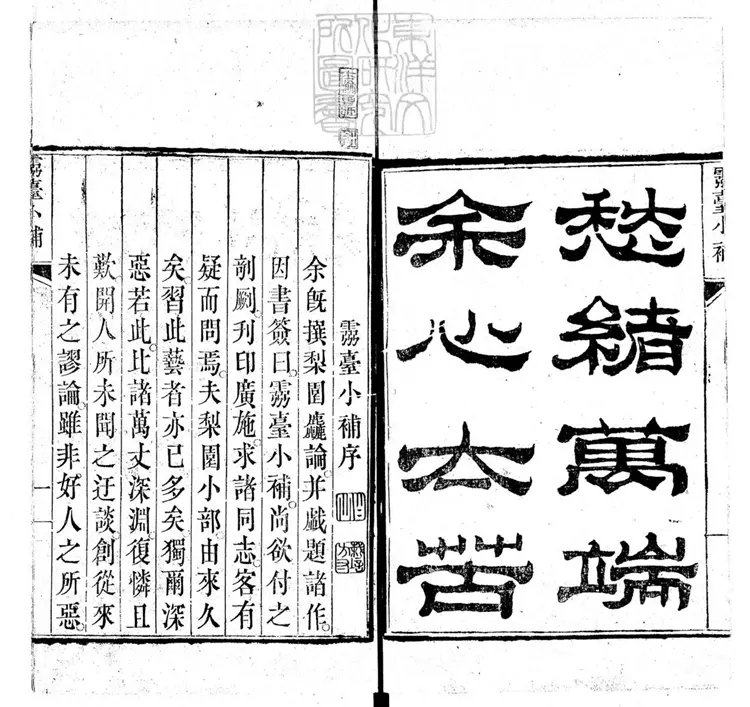 靈臺小補
愁緒萬端
余心太苦
東洋文化研究所圖書
靈臺小補序
余旣撰梨園麤論。并戲題諸作。
因書簽曰。靈臺小補。尚欲付之
剞劂刋印廣施。求諸同志。客有
疑而問焉。夫梨園小部由來久
矣習此藝者亦已多矣獨爾深
惡若此。比諸萬丈深淵。復憐且
歎開人所未聞之迂談創從來
未有之謬論。雖非好人之所惡
靈臺小補
一